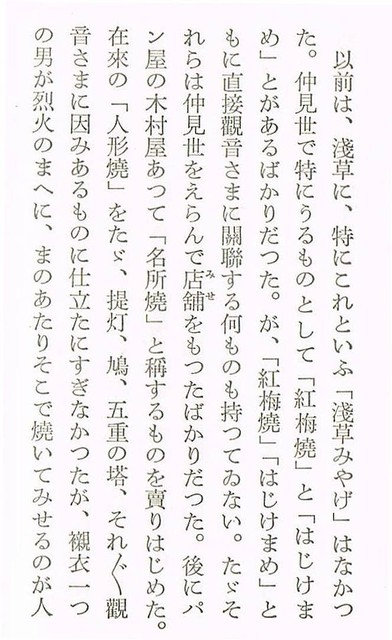 以前は、淺草に、特にこれといふ「淺草みやげ」はなかつ
た。仲見世で特にうるものとして「紅梅燒」と「はじけま
め」とがあるばかりだつた。が、「紅梅燒」「はじけまめ」と
もに直接觀音さまに關聯する何ものも持つてゐない。たゞそ
れらは仲見世をえらんで店舖をもつたばかりだつた。後にパ
みせ
ン屋の木村屋あつて「名所燒」と稱するものを賣りはじめた。
在來の「人形燒」をたゞ、提灯、鳩、五重の塔、それ〴〵觀
音さまに因みあるものに仕立たにすぎなかつたが、襯衣一つ
の男が烈火のまへに、まのあたりそこで燒いてみせるのが人